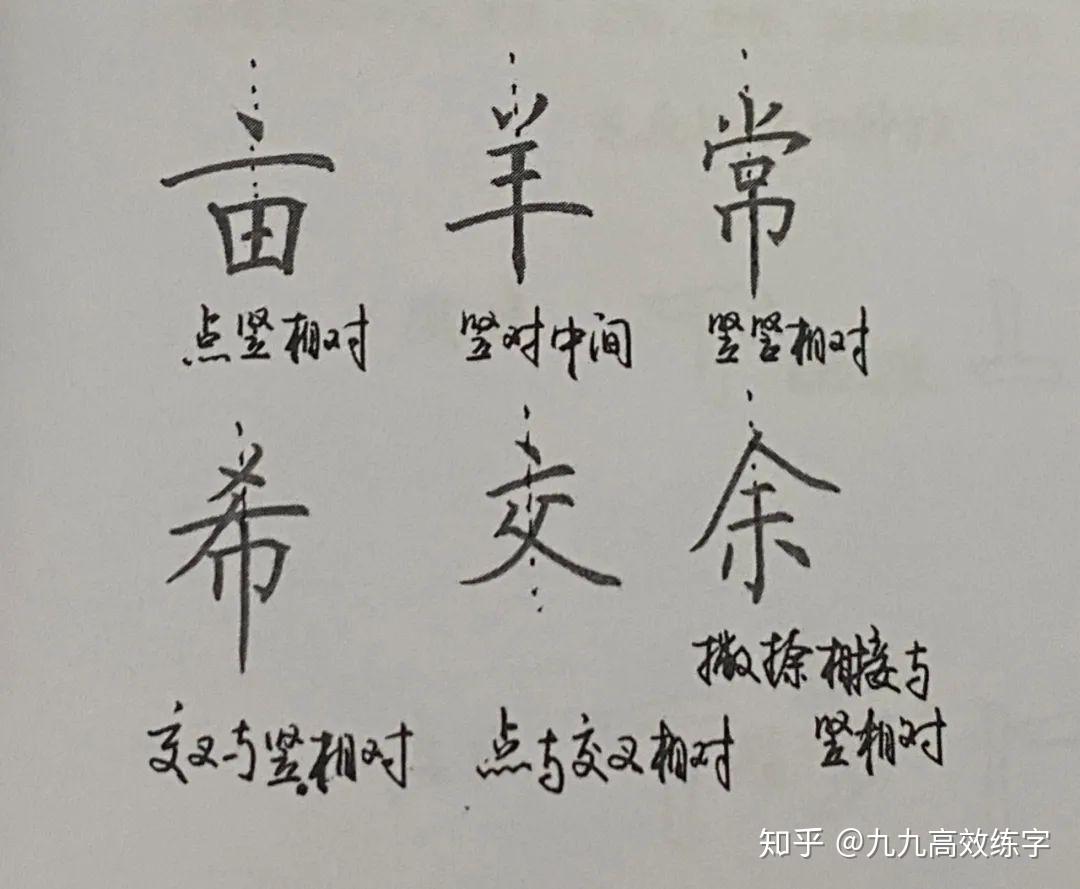 亩 羊 常
点竖相对 竖对中间 竖竖相对
希 交 余
撇捺相接与
交叉与竖相对 点与交叉相对 竖相对
知乎 @九九高效练字